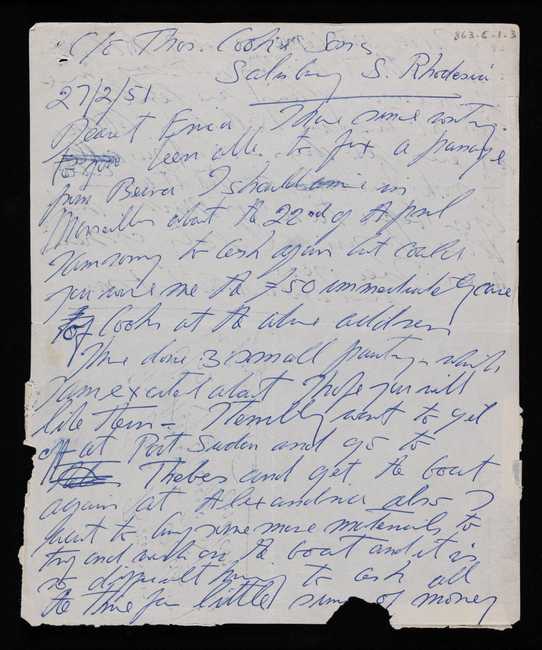 863-6-1-3
c/o Thos. Cook & Sons
Salisbury S. Rhodesia
27/2/51
Dearest Erica I have since writing
been able to fix a passage
from Beira I should arrive in
Marseilles about the 22nd of April
I am sorry to ask again but could
you wire me the £50 immediately care
of Cooks at the above address
I have done 3 small paintings which
I am excited about I hope you will
like them – I terribly want to get
off at Port Sudan and go to
Thebes and get the boat
again at Alexandria also I
want to buy some more materials to
try and work on the boat and it is
so difficult having to ask all
the time for little sums of money